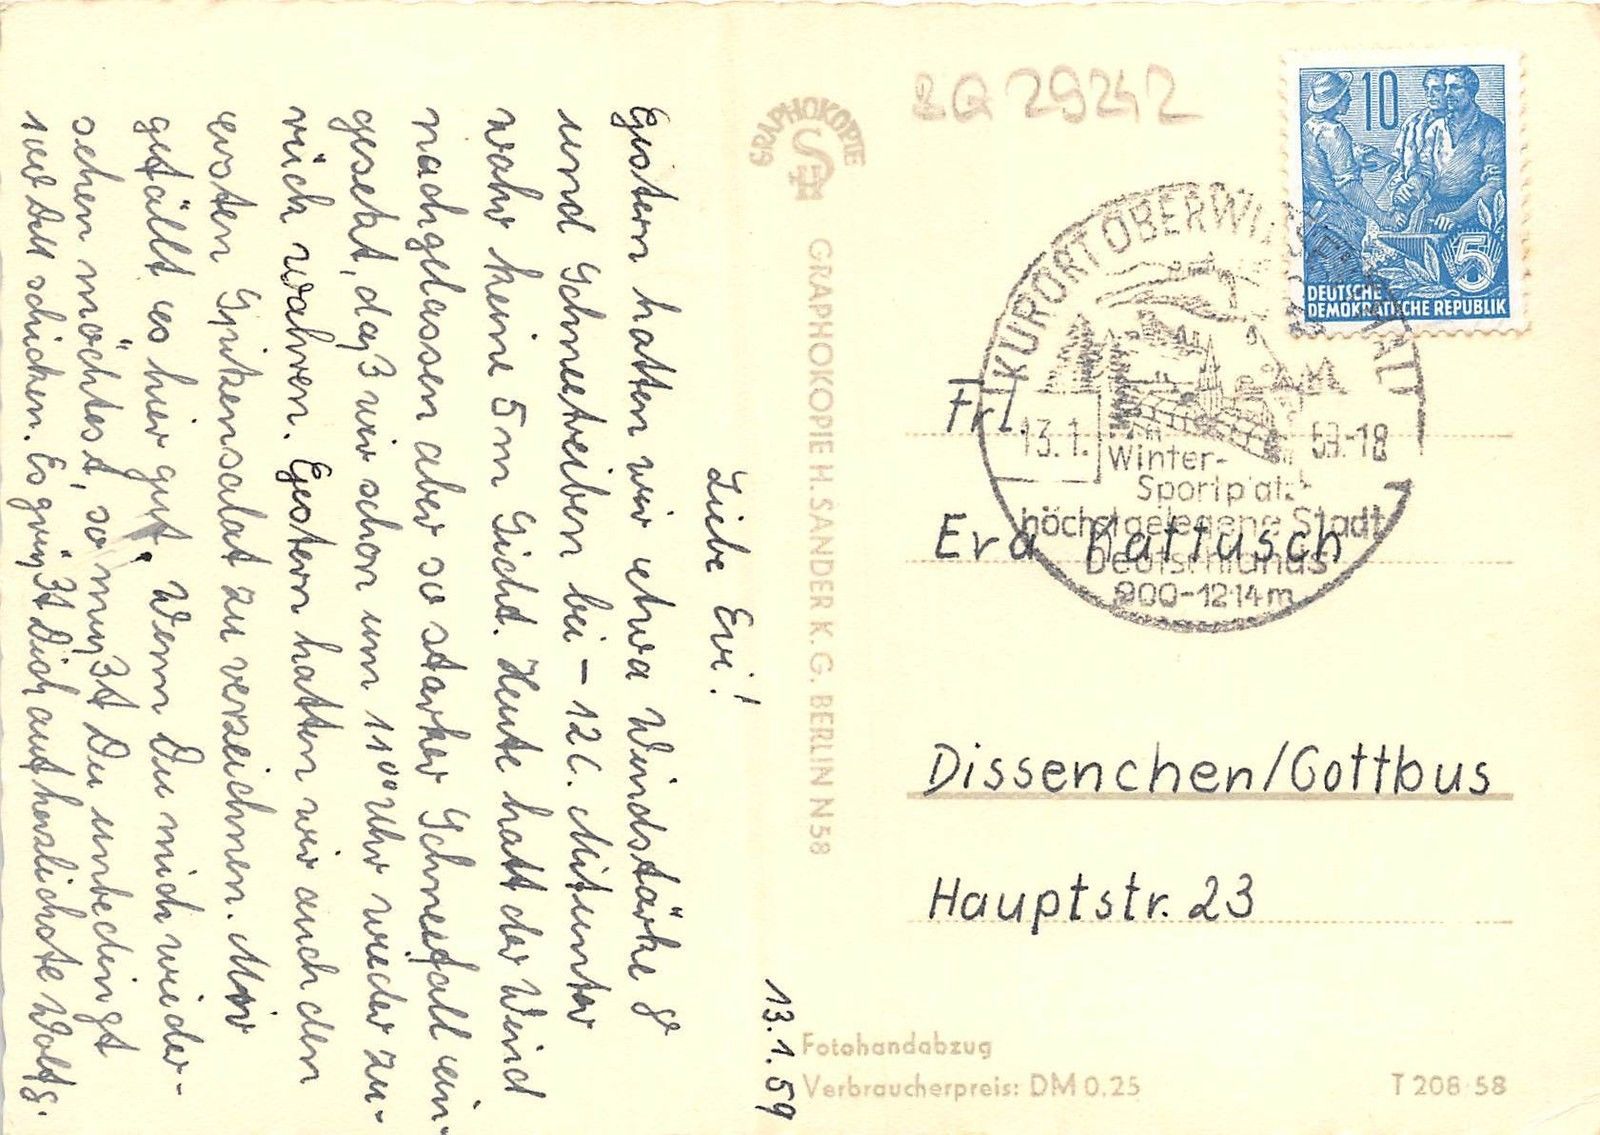 13.1.59
Liebe Evi!
Gestern hatten wir etwa Windstärke 8
und Schneetreiben bei – 12 C. Mitunter
wahr keine 5 m Sicht. Heute hatt der Wind
nachgelassen aber so starker Schneefall ein-
gesetzt, daß wir schon um 11⁰⁰ Uhr wieder zu-
rück wahren. Gestern hatten wir auch den
ersten Spitzensalat zu verzeichnen. Mir
gefällt es hier gut. Wenn Du mich wieder-
sehen möchtest, so mußt Du unbedingt
schicken. Es grüßt Dich aufherzlichste Wolfg.
GRAPHOKOPIE
GRAPHOKOPIE H. SANDER K. G. BERLIN N 58
2Q 29242
10
5
DEUTSCHE
DEMOKRATISCHE REPUBLIK
KURORT OBERWIESENTHAL
13.1. 59.-18
Winter-
Sportplatz
höchstgelegene Stadt
Deutschlands
900-1214m
Frl.
Eva Kattusch
Dissenchen/Cottbus
Hauptstr. 23
Fotohandabzug
Verbraucherpreis: DM 0.25
T 208 58